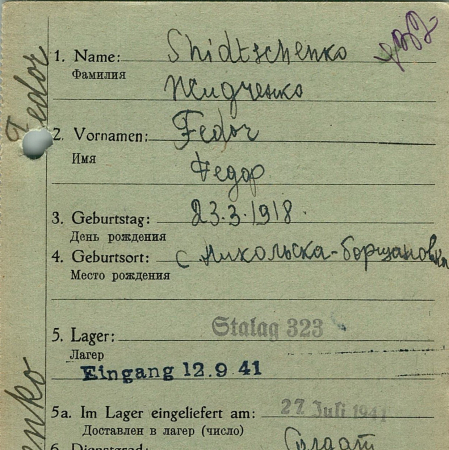 1. Name: Shidtschenko
Фамилия
Жидченко
2. Vornamen: Fedor
Имя
Федор
3. Geburtstag: 23.3.1918.
День рождения
4. Geburtsort: с Никольска-Борщановка
Место рождения
5. Lager: Stalag 323
Лагер
Eingang 12.9 41
5a. Im Lager eingeliefert am: 27 Juli 1941
Доставлен в лагер (число)
6. Dienstgrad: Солдат
Fedor
enko